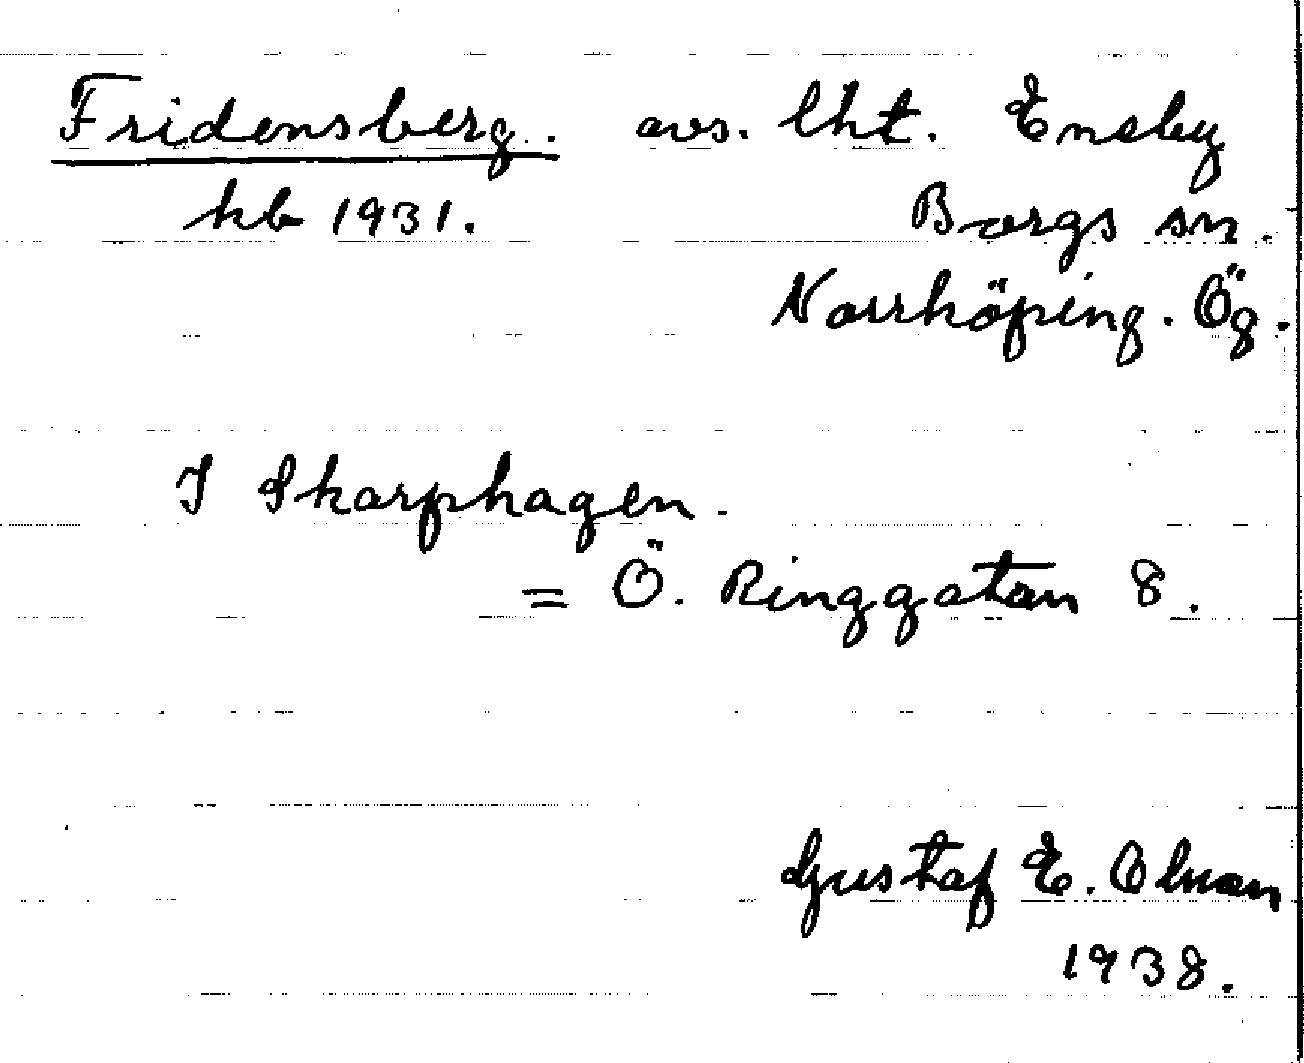 Fridensberg. avs. lht. Eneby
kb 1931. Borgs sn.
Norrköping. Ög.
I Skarphagen.
= Ö. Ringgatan 8.
Gustaf E. Olson
1938.